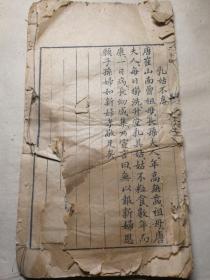 乳姑不怠
唐崔山南曾祖母長孫夫人年高無齒祖母唐
夫人每日櫛洗升堂乳其姑姑不粒食數年而
康一日病長幼咸集乃宣言曰無以報新婦恩
願子孫婦如新婦孝敬足矣